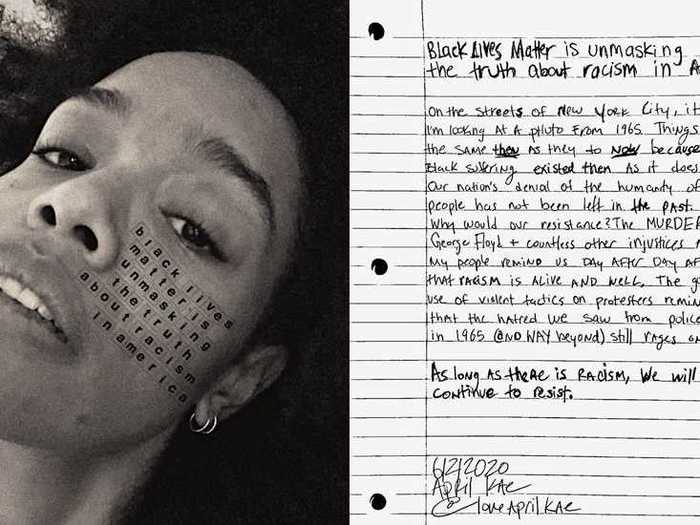 black lives
matter is
unmasking
the truth
about racism
in america
Black Lives Matter is unmasking
the truth about racism in A
On the streets of New York City, it
I'm looking at a photo from 1965. Things
the same then as they to now because
Black suffering existed then as it does
Our nation's denial of the humanity of
people has not been left in the past.
Why would our resistance? The MURDER
George Floyd + countless other injustices
My people remind us day after day
that racism is alive and well. The
use of violent tactics on protesters
that the hatred we saw from police
in 1965 (and way beyond) still rages on
As long as there is racism, we will
continue to resist.
6/2/2020
April Kae
@loveAprilKae